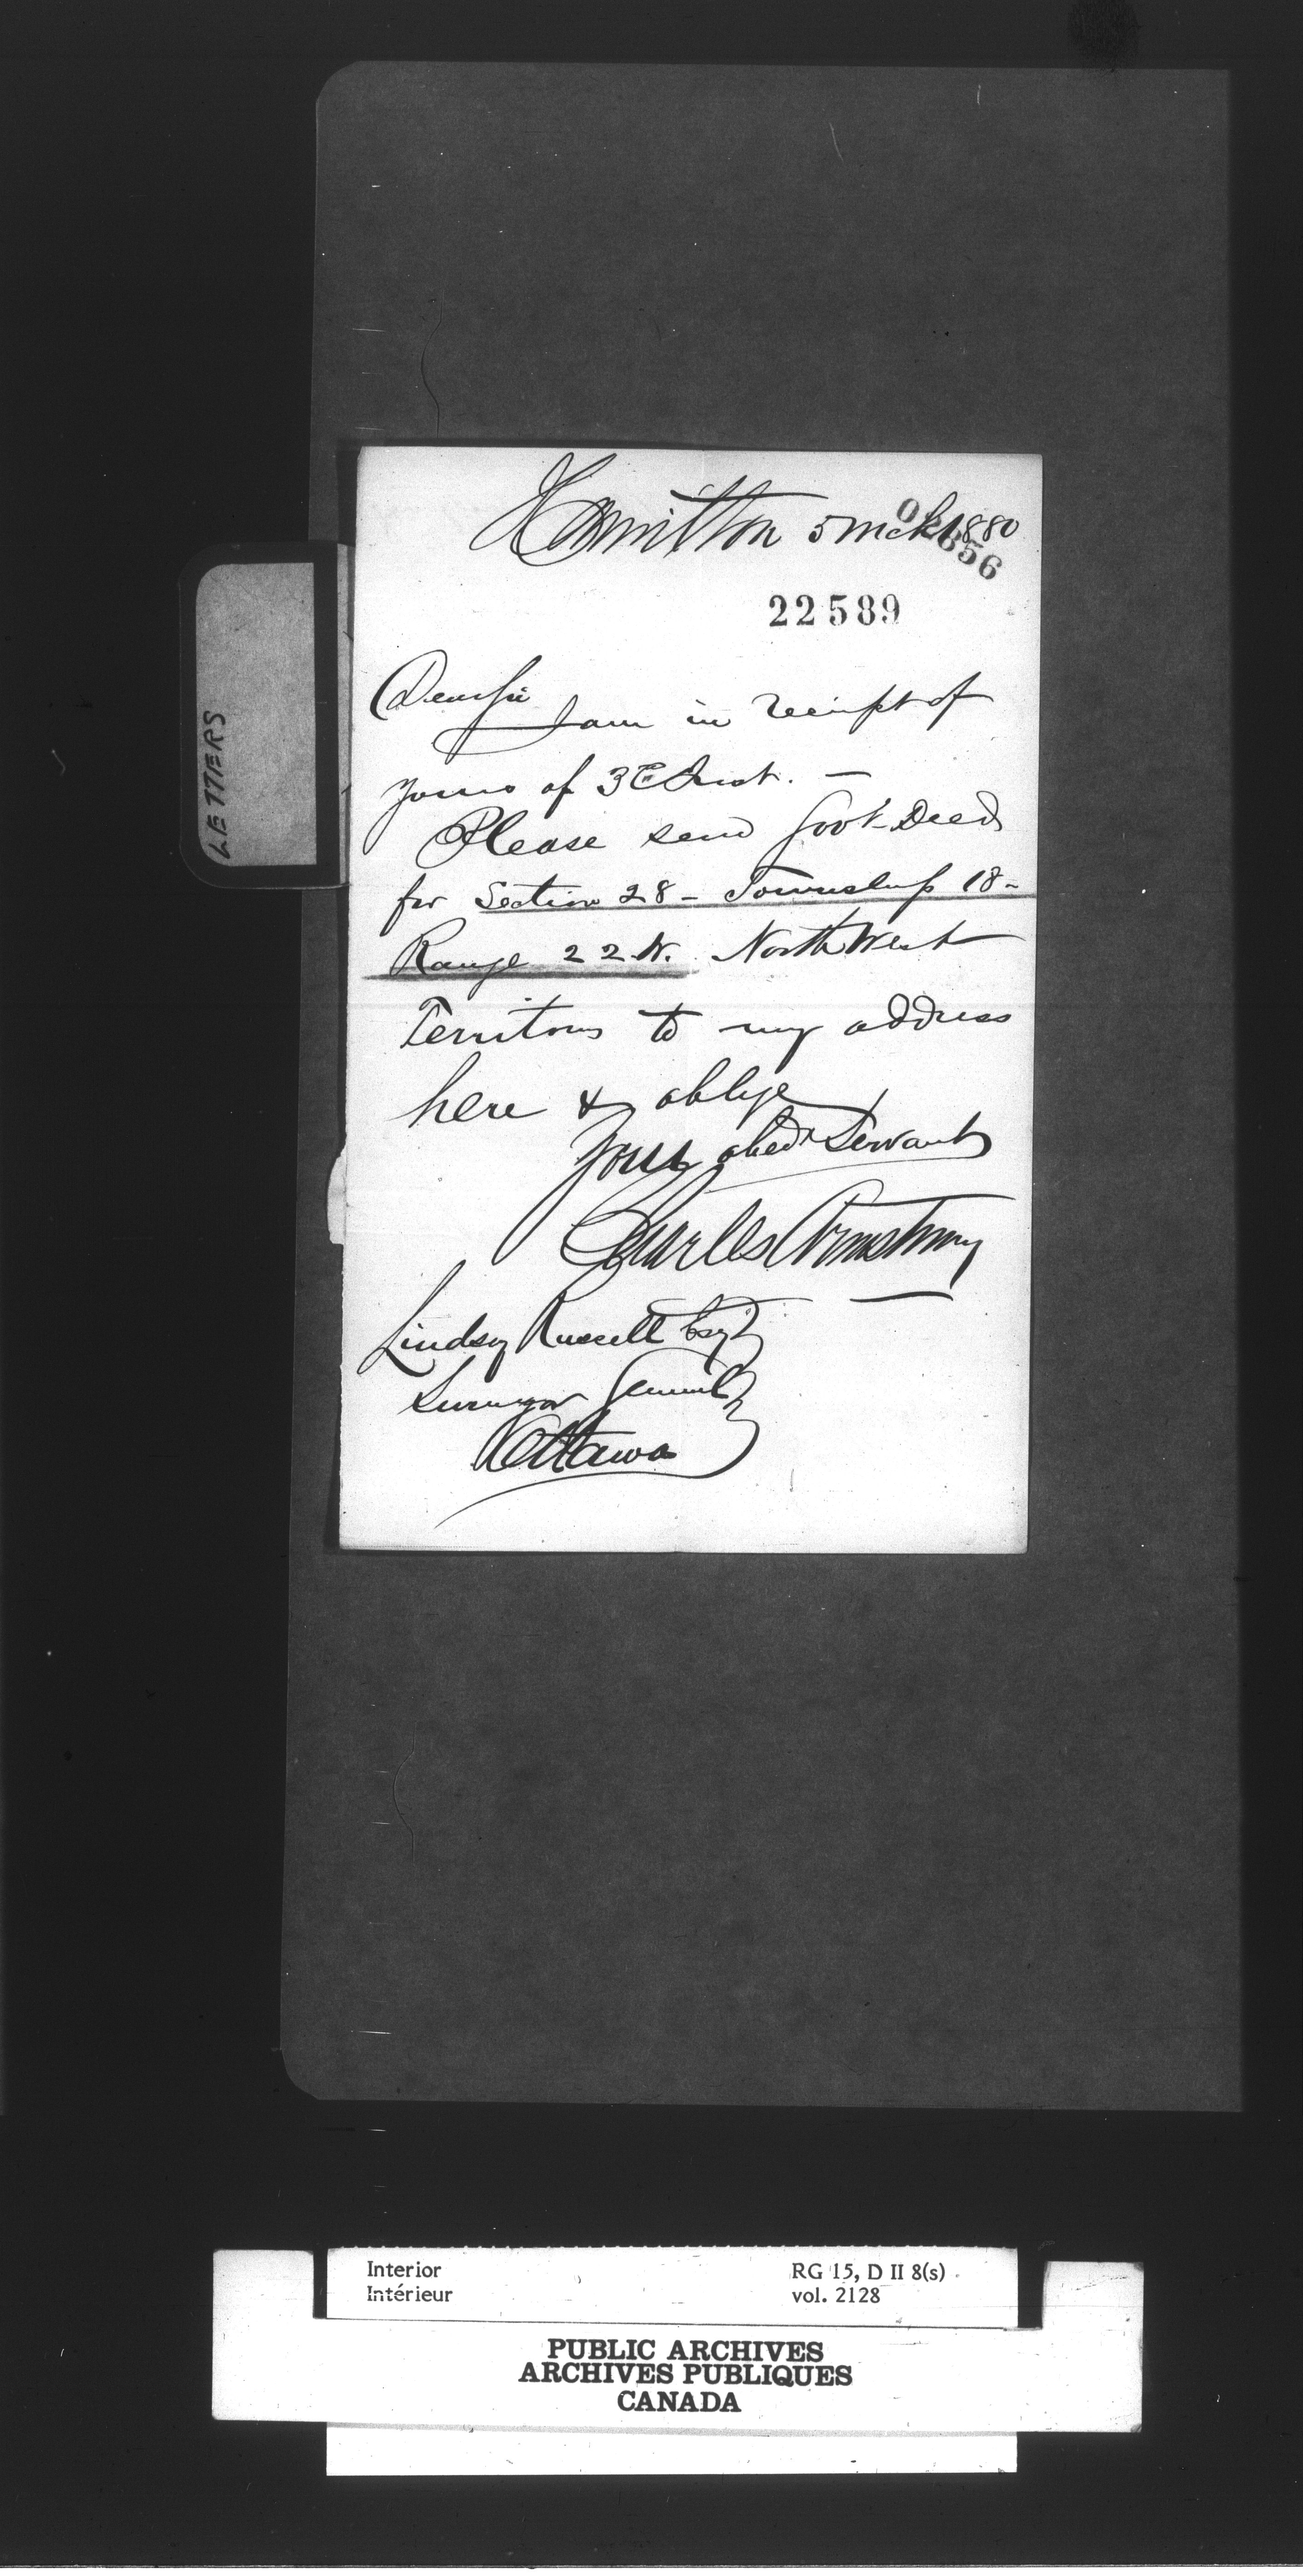 Hamilton 5 Mch 1880
22589
Dear Sir
I am in receipt of
yours of 3d Inst. —
Please send Govt Deed
for Section 28 - Township 18 -
Range 22 W. North West
Territory to my address
here & oblige
Your obedt Servant
Charles Armstrong
Lindsy Russell Esqr
Surveyor General
Ottawa
LETTERS
Interior
Intérieur
RG 15, D II 8(s)
vol. 2128
PUBLIC ARCHIVES
ARCHIVES PUBLIQUES
CANADA